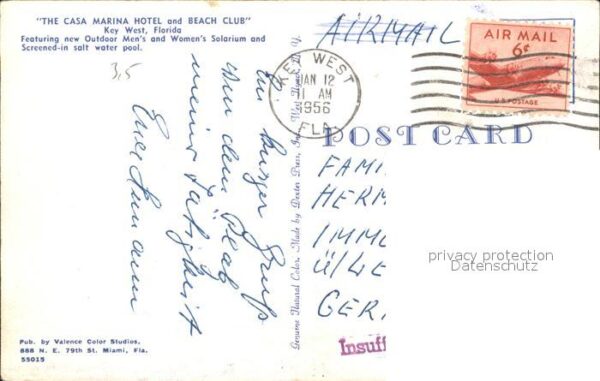 "THE CASA MARINA HOTEL and BEACH CLUB"
Key West, Florida
Featuring new Outdoor Men's and Women's Solarium and
Screened-in salt water pool.
3,5
Ein kurzer Gruß
von dem Platz
meiner Tätigkeit
Pub. by Valence Color Studios,
888 N. E. 79th St. Miami, Fla.
55015
Genuine Natural Color. Made by Dexter Press, Inc. West Nyack, N. Y.
AIRMAIL
KEY WEST
JAN 12
11 AM
1956
FLA.
AIR MAIL
6¢
U.S. POSTAGE
POST CARD
FAMI
HERM
IMM
Ü/
GER
privacy protection
Datenschutz
Insuff